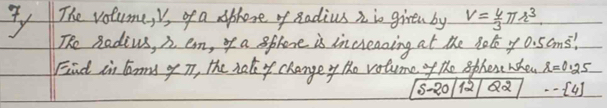 7) The volume, V, of a sphere of radius r is given by V = 4/3 πr³.
The radius, r cm, of a sphere is increasing at the rate of 0.5cms⁻¹.
Find in terms of π, the rate of change of the volume of the sphere when r=0.25
[S-20/12/Q2] --[4]